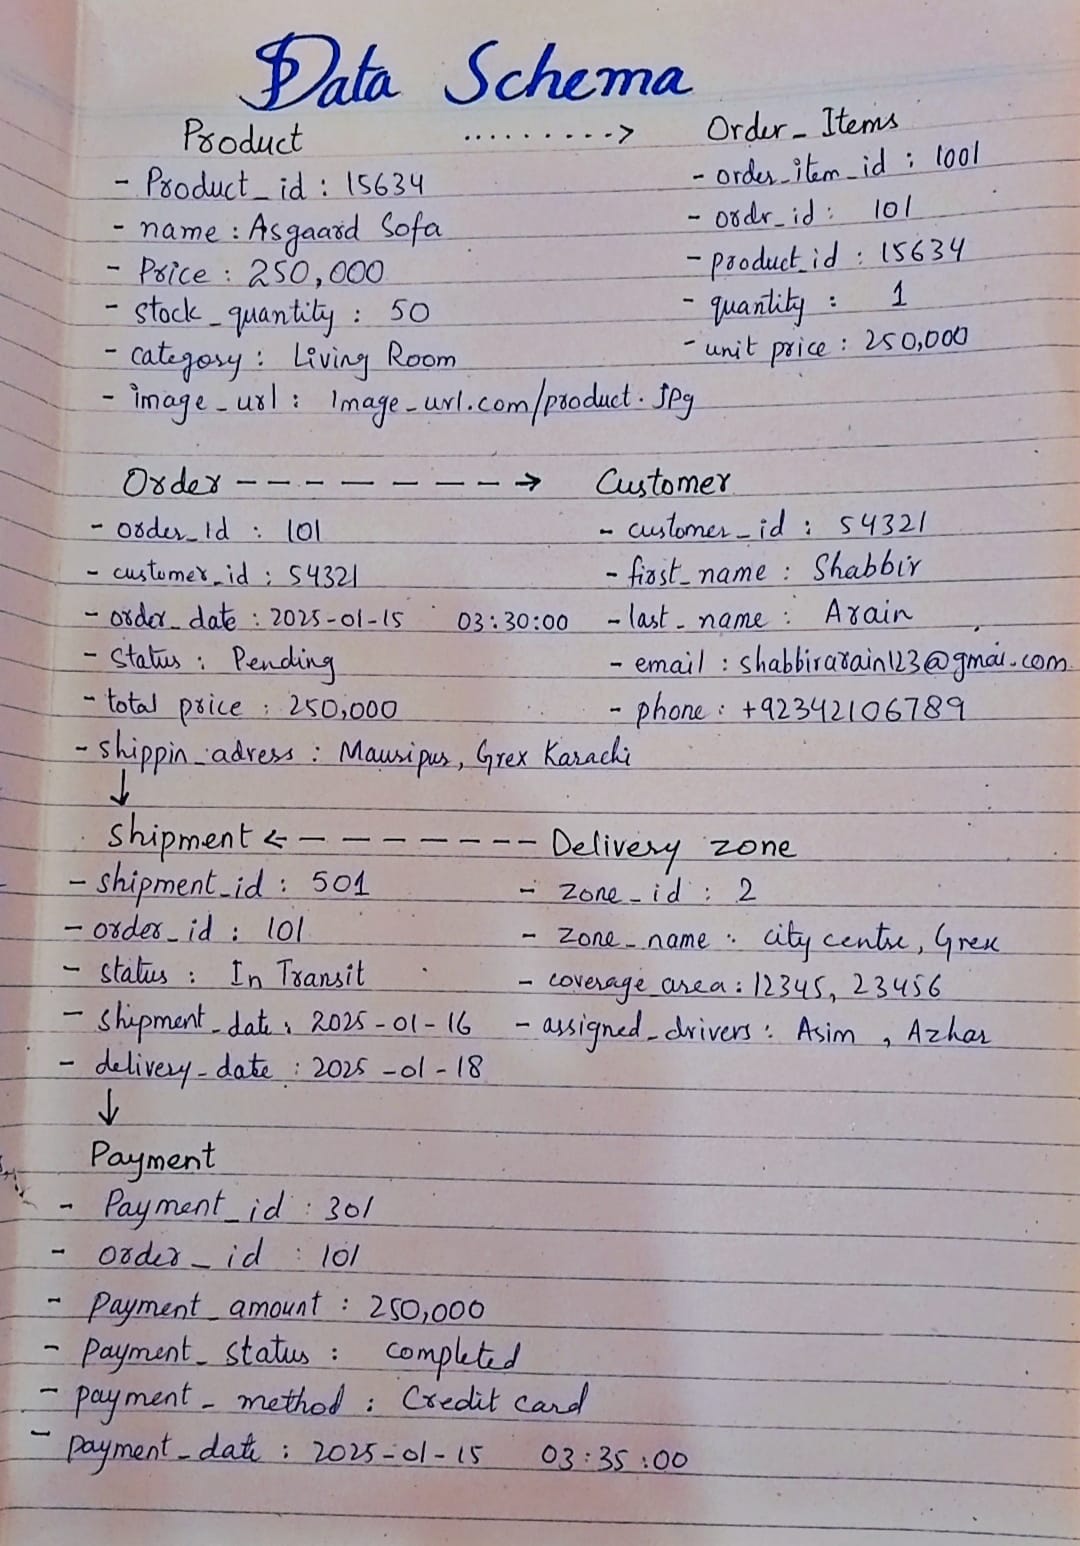 Data Schema
Product ·········> Order_Items
- Product_id : 15634
- name : Asgaard Sofa
- Price : 250,000
- stock_quantity : 50
- category : Living Room
- image_url : Image_url.com/product.jpg
- order_item_id : 1001
- ordr_id : 101
- product_id : 15634
- quantity : 1
- unit price : 250,000
Order --------> Customer
- order_Id : 101
- customer_id : 54321
- order_date : 2025-01-15 03:30:00
- Status : Pending
- total price : 250,000
- shippin_adress : Mauripur, Grex Karachi
- customer_id : 54321
- first_name : Shabbir
- last_name : Arain
- email : shabbirarain123@gmai.com
- phone : +92342106789
↓
Shipment <-------- Delivery zone
- shipment_id : 501
- order_id : 101
- status : In Transit
- Shipment_date : 2025-01-16
- delivery_date : 2025-01-18
- zone_id : 2
- zone_name : city centre, Grex
- coverage_area : 12345, 23456
- assigned_drivers : Asim , Azhar
↓
Payment
- Payment_id : 301
- order_id : 101
- Payment_amount : 250,000
- Payment_status : completed
- payment_method : Credit card
- payment_date : 2025-01-15 03:35:00